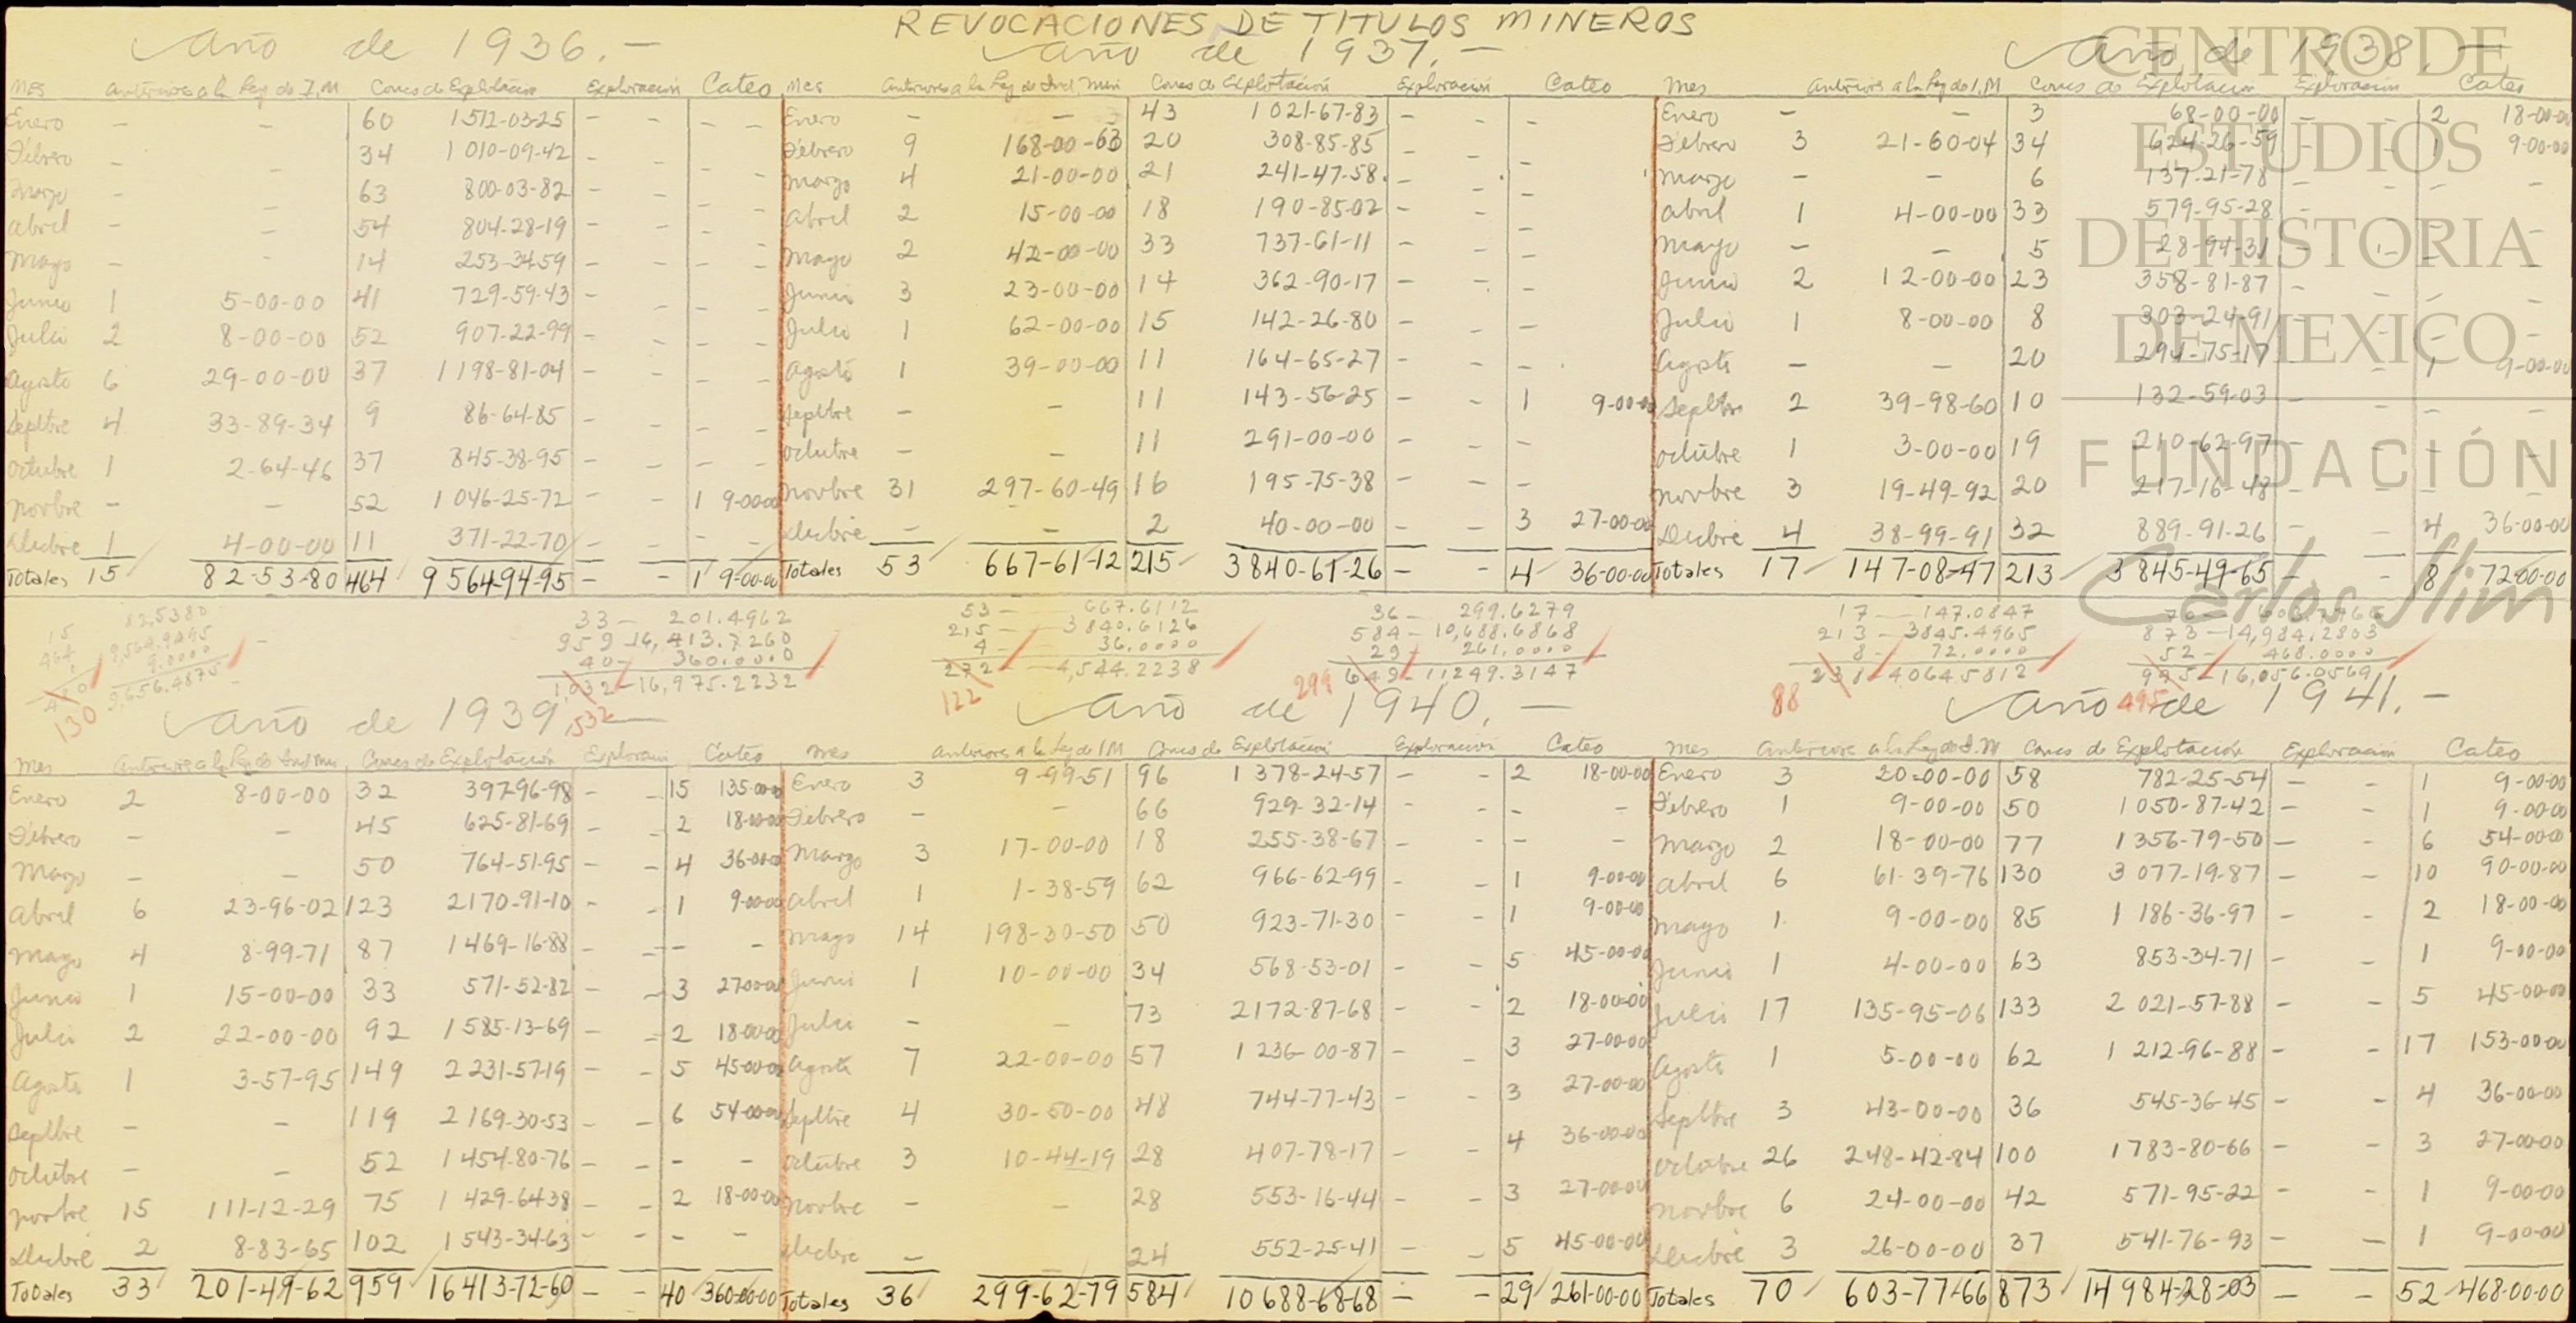 REVOCACIONES DE TITULOS MINEROS
Año de 1936.—
Mes Anteriores a la Ley de I.M Conces de Explotación Exploración Cateo
Enero — — 60 1512-03-25 — — — —
Febrero — — 34 1010-09-42 — — — —
Marzo — — 63 800-03-82 — — — —
Abril — — 54 804-28-19 — — — —
Mayo — — 14 253-34-59 — — — —
Junio 1 5-00-00 41 729-59-43 — — — —
Julio 2 8-00-00 52 907-22-99 — — — —
Agosto 6 29-00-00 37 1198-81-04 — — — —
Sepbre 4 33-89-34 9 86-64-85 — — — —
Octubre 1 2-64-46 37 845-38-95 — — — —
Novbre — — 52 1046-25-72 — — 1 9-00-00
Dicbre 1 4-00-00 11 371-22-70 — — — —
Totales 15 82-53-80 464 9564-94-95 — — 1 9-00-00
Año de 1937.—
Mes Anteriores a la Ley de Ind. Min Conces de Explotación Exploración Cateo
Enero — — 43 1021-67-83 — — —
Febrero 9 168-00-63 20 308-85-85 — — —
Marzo 4 21-00-00 21 241-47-58 — — —
Abril 2 15-00-00 18 190-85-02 — — —
Mayo 2 42-00-00 33 737-61-11 — — —
Junio 3 23-00-00 14 362-90-17 — — —
Julio 1 62-00-00 15 142-26-80 — — —
Agosto 1 39-00-00 11 164-65-27 — — —
Sepbre — — 11 143-56-25 — — 1 9-00-00
Octubre — — 11 291-00-00 — — —
Novbre 31 297-60-49 16 195-75-38 — — —
Dicbre — — 2 40-00-00 — — 3 27-00-00
Totales 53 667-61-12 215 3840-61-26 — — 4 36-00-00
Año de 1938.—
Mes Anteriores a la Ley de I.M Conces de Explotación Exploración Cateo
Enero — — 3 68-00-00 — — 2 18-00-00
Febrero 3 21-60-04 34 624-26-59 — — 1 9-00-00
Marzo — — 6 137-21-78 — — — —
Abril 1 4-00-00 33 579-95-28 — — — —
Mayo — — 5 28-94-31 — — — —
Junio 2 12-00-00 23 358-81-87 — — — —
Julio 1 8-00-00 8 303-24-91 — — — —
Agosto — — 20 294-75-17 — — 1 9-00-00
Sepbre 2 39-98-60 10 132-59-03 — — — —
Octubre 1 3-00-00 19 210-62-97 — — — —
Novbre 3 19-49-92 20 217-16-48 — — — —
Dicbre 4 38-99-91 32 889-91-26 — — 4 36-00-00
Totales 17 147-08-47 213 3845-49-65 — — 8 72-00-00
CENTRO DE
ESTUDIOS
DE HISTORIA
DE MEXICO
FUNDACIÓN
Carlos Slim
15 82,5380
464 9,564.9495
1 9.0000
480 9,656.4875
130
33 — 201.4962
959 — 16,413.7260
40 — 360.0000
1,032 — 16,975.2232
532
53 — 667.6112
215 — 3840.6126
4 — 36,0000
272 — 4,544.2238
122
36 — 299.6279
584 — 10,688.6868
29 — 261,0000
649 — 11249.3147
299
17 — 147.0847
213 — 3845.4965
8 — 72.0000
238 4064.5812
88
70 — 603.7766
873 — 14,984.2803
52 — 468.0000
995 — 16,056.0569
495
Año de 1939.—
Mes Anteriores a la Ley de Ind Min Conces de Explotación Exploración Cateo
Enero 2 8-00-00 32 397-96-98 — — 15 135-00-00
Febrero — — 45 625-81-69 — — 2 18-00-00
Marzo — — 50 764-51-95 — — 4 36-00-00
Abril 6 23-96-02 123 2170-91-10 — — 1 9-00-00
Mayo 4 8-99-71 87 1469-16-88 — — — —
Junio 1 15-00-00 33 571-52-82 — — 3 27-00-00
Julio 2 22-00-00 92 1585-13-69 — — 2 18-00-00
Agosto 1 3-57-95 149 2231-57-19 — — 5 45-00-00
Sepbre — — 119 2169-30-53 — — 6 54-00-00
Octubre — — 52 1454-80-76 — — — —
Novbre 15 111-12-29 75 1429-64-38 — — 2 18-00-00
Dicbre 2 8-83-65 102 1543-34-63 — — — —
Totales 33 201-49-62 959 16413-72-60 — — 40 360-00-00
Año de 1940.—
Mes Anteriores a la Ley de I M Conces de Explotación Exploración Cateo
Enero 3 9-99-51 96 1378-24-57 — — 2 18-00-00
Febrero — — 66 929-32-14 — — — —
Marzo 3 17-00-00 18 255-38-67 — — — —
Abril 1 1-38-59 62 966-62-99 — — 1 9-00-00
Mayo 14 198-30-50 50 923-71-30 — — 1 9-00-00
Junio 1 10-00-00 34 568-53-01 — — 5 45-00-00
Julio — — 73 2172-87-68 — — 2 18-00-00
Agosto 7 22-00-00 57 1236-00-87 — — 3 27-00-00
Sepbre 4 30-50-00 48 744-77-43 — — 3 27-00-00
Octubre 3 10-44-19 28 407-78-17 — — 4 36-00-00
Novbre — — 28 553-16-44 — — 3 27-00-00
Dicbre — — 24 552-25-41 — — 5 45-00-00
Totales 36 299-62-79 584 10688-68-68 — — 29 261-00-00
Año de 1941.—
Mes Anteriores a la Ley de I.M Conces de Explotación Exploración Cateo
Enero 3 20-00-00 58 782-25-54 — — 1 9-00-00
Febrero 1 9-00-00 50 1050-87-42 — — 1 9-00-00
Marzo 2 18-00-00 77 1356-79-50 — — 6 54-00-00
Abril 6 61-39-76 130 3077-19-87 — — 10 90-00-00
Mayo 1 9-00-00 85 1186-36-97 — — 2 18-00-00
Junio 1 4-00-00 63 853-34-71 — — 1 9-00-00
Julio 17 135-95-06 133 2021-57-88 — — 5 45-00-00
Agosto 1 5-00-00 62 1212-96-88 — — 17 153-00-00
Sepbre 3 43-00-00 36 545-36-45 — — 4 36-00-00
Octubre 26 248-42-84 100 1783-80-66 — — 3 27-00-00
Novbre 6 24-00-00 42 571-95-22 — — 1 9-00-00
Dicbre 3 26-00-00 37 541-76-93 — — 1 9-00-00
Totales 70 603-77-66 873 14984-28-03 — — 52 468-00-00